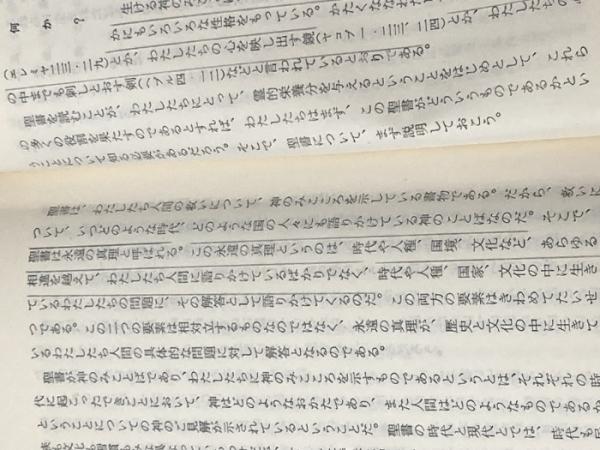 何か?
生ける神の
かにもいろいろな性格をもっている。かたくな
(エレミヤ二三・二九)とか、わたしたちの心を映し出す鏡(ヤコブ一・二三、二四)とか、わたしたちの
の中までも刺しとおす剣(ヘブル四・一二)などと言われているとおりである。
聖書を読むことが、わたしたちにとって、霊的栄養分を与えるということをはじめとして、これら
の多くの役割を果たすのであるとすれば、わたしたちはまず、この聖書がどういうものであるかとい
うことについて知る必要があるだろう。そこで、聖書について、まず説明しておこう。
聖書は、わたしたち人間の救いについて、神のみこころを示している書物である。だから、救いに
ついて、いつどのような時代、どのような国の人々にも語りかけている神のことばなのだ。そこで、
聖書は永遠の真理と呼ばれる。この永遠の真理というのは、時代や人種、国境、文化など、あらゆる
相違を越えて、わたしたち人間に語りかけているばかりでなく、時代や人種、国家、文化の中に生き
ているわたしたちの問題に、その解答として語りかけてくるのだ。この両方の要素はきわめてたいせ
つである。この二つの要素は相対立するものなのではなく、永遠の真理が、歴史と文化の中に生きて
いるわたしたち人間の具体的な問題に対して解答となるのである。
聖書が神のみことばであり、わたしたちに神のみこころを示すものであるということは、それぞれの時
代に起こったできごとにおいて、神はどのようなおかたであり、また人間はどのようなものであるか
ということについての神のご見解が示されているということだ。聖書の時代と現代とでは、時代も民